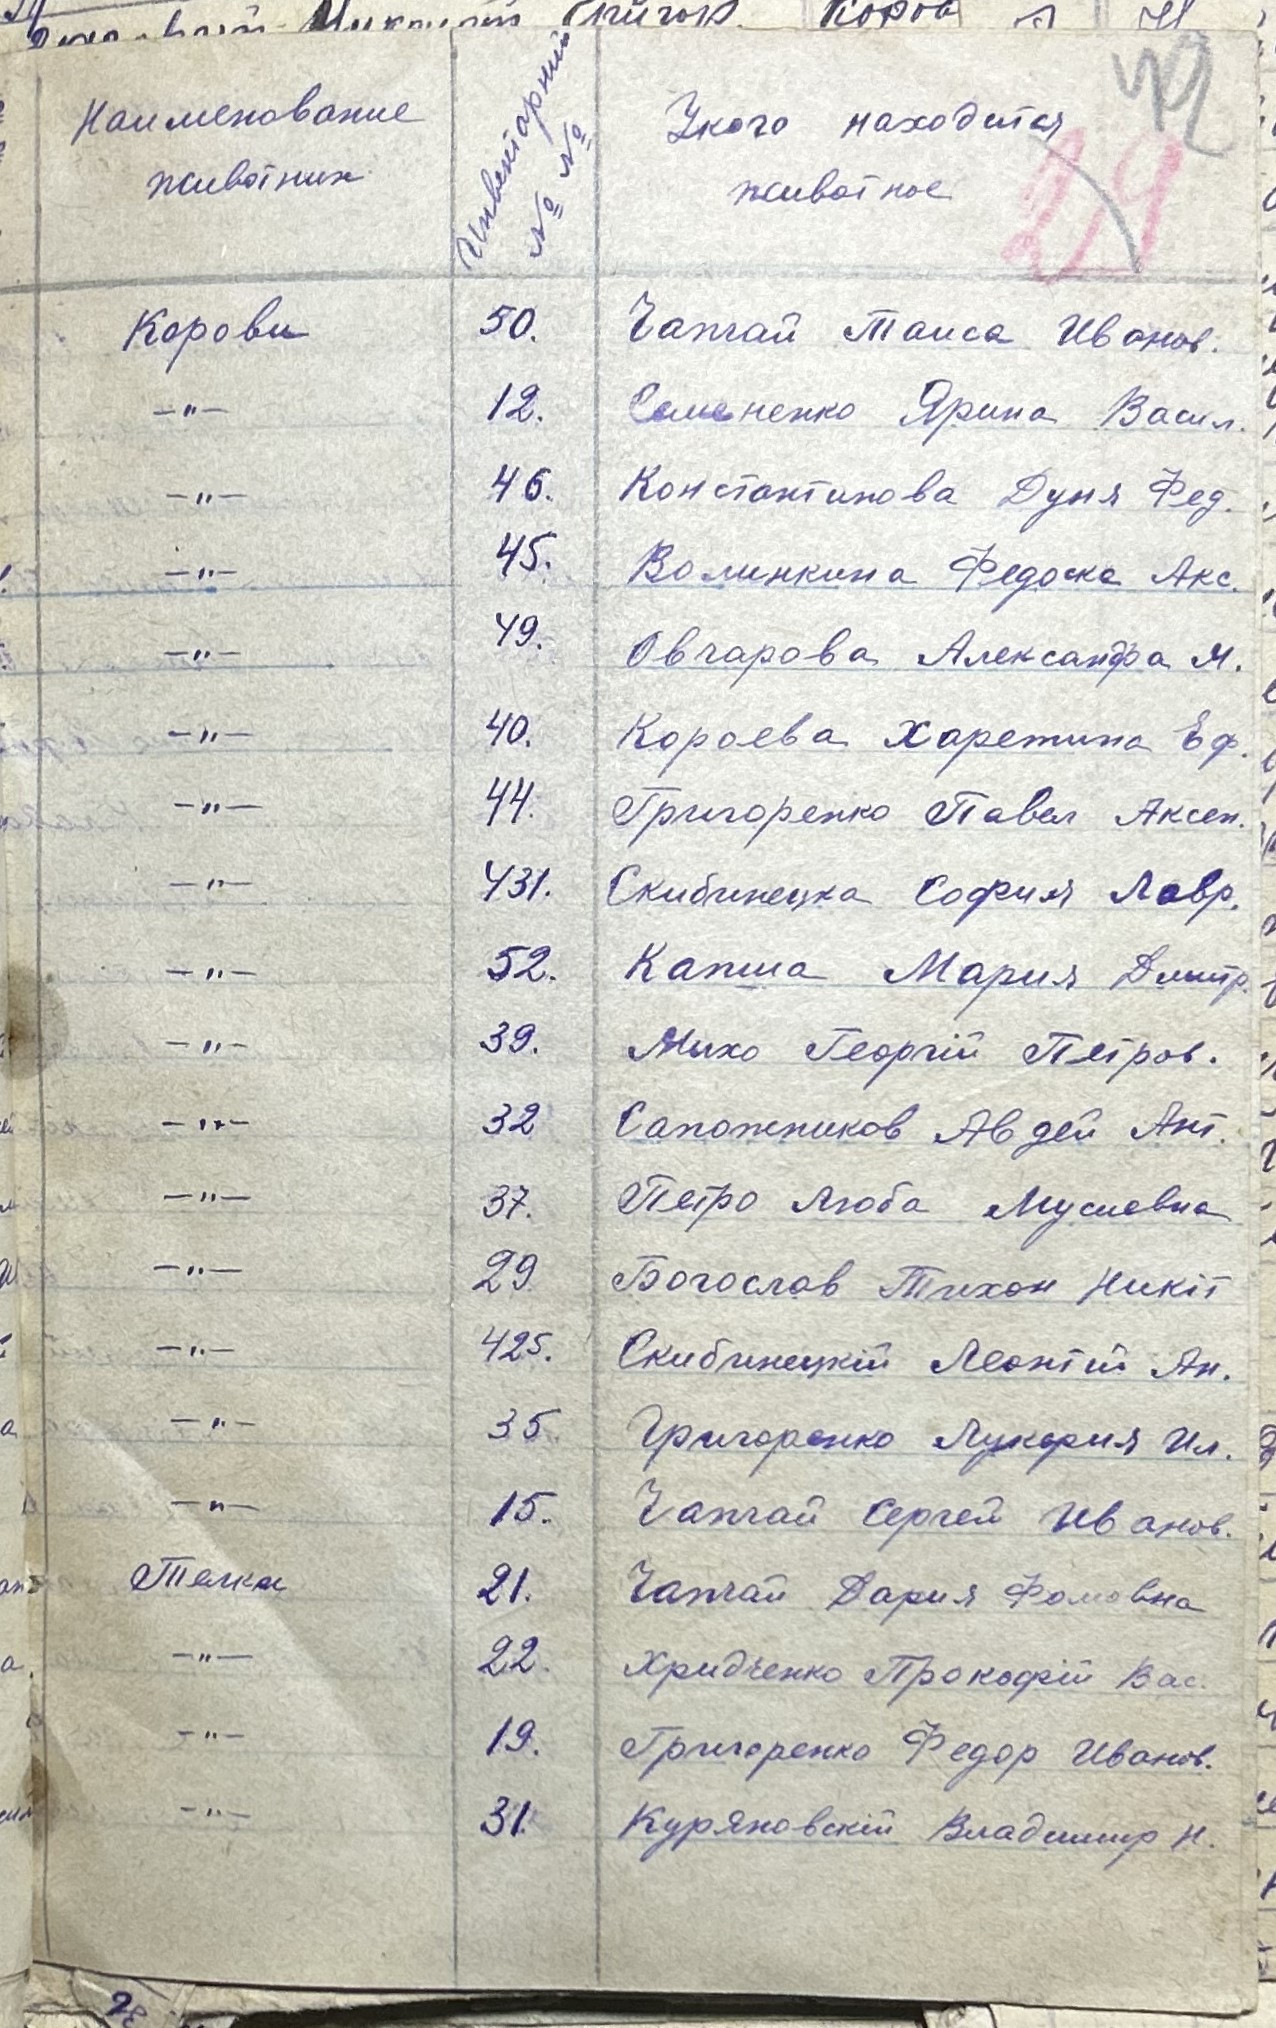 Наименование животних Инвентарний №№ У кого находится животное
42
29
Корови 50. Чапчай Таиса Иванов.
—"— 12. Семененко Ярина Васил.
—"— 46. Константинова Дуня Фед.
—"— 45. Волинкина Федоска Акс.
—"— 49. Овчарова Александра М.
—"— 40. Короева Харетина Еф.
—"— 44. Григоренко Павел Аксен.
—"— 431. Скибинецка София Лавр.
—"— 52. Капша Мария Дмитр.
—"— 39. Михо Георгій Петров.
—"— 32 Сапожников Авдей Ант.
—"— 37. Петро Люба Мусиевна
—"— 29 Богослав Тихон Никіт
—"— 425. Скибинецкій Леонтій Ан.
—"— 35 Григоренко Лукерия Ил.
—"— 15. Чапчай Сергей Иванов.
Телки 21. Чапчай Дария Фомовна
—"— 22. Хридченко Прокофій Вас.
—"— 19. Григоренко Федор Иванов.
—"— 31. Куряновскій Владимир Н.